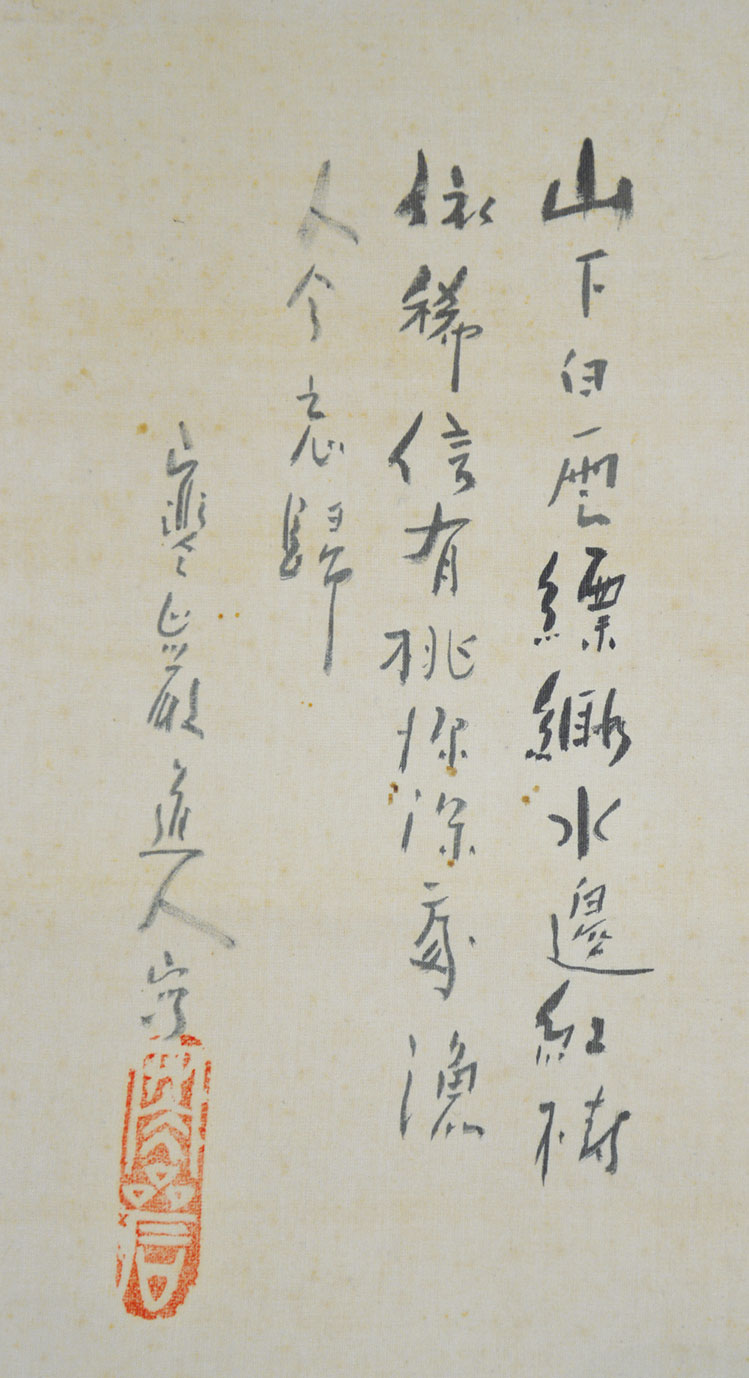 山下白雲縹緲水邊紅樹
依稀信有桃源深處漁
人今忘歸
巖道人